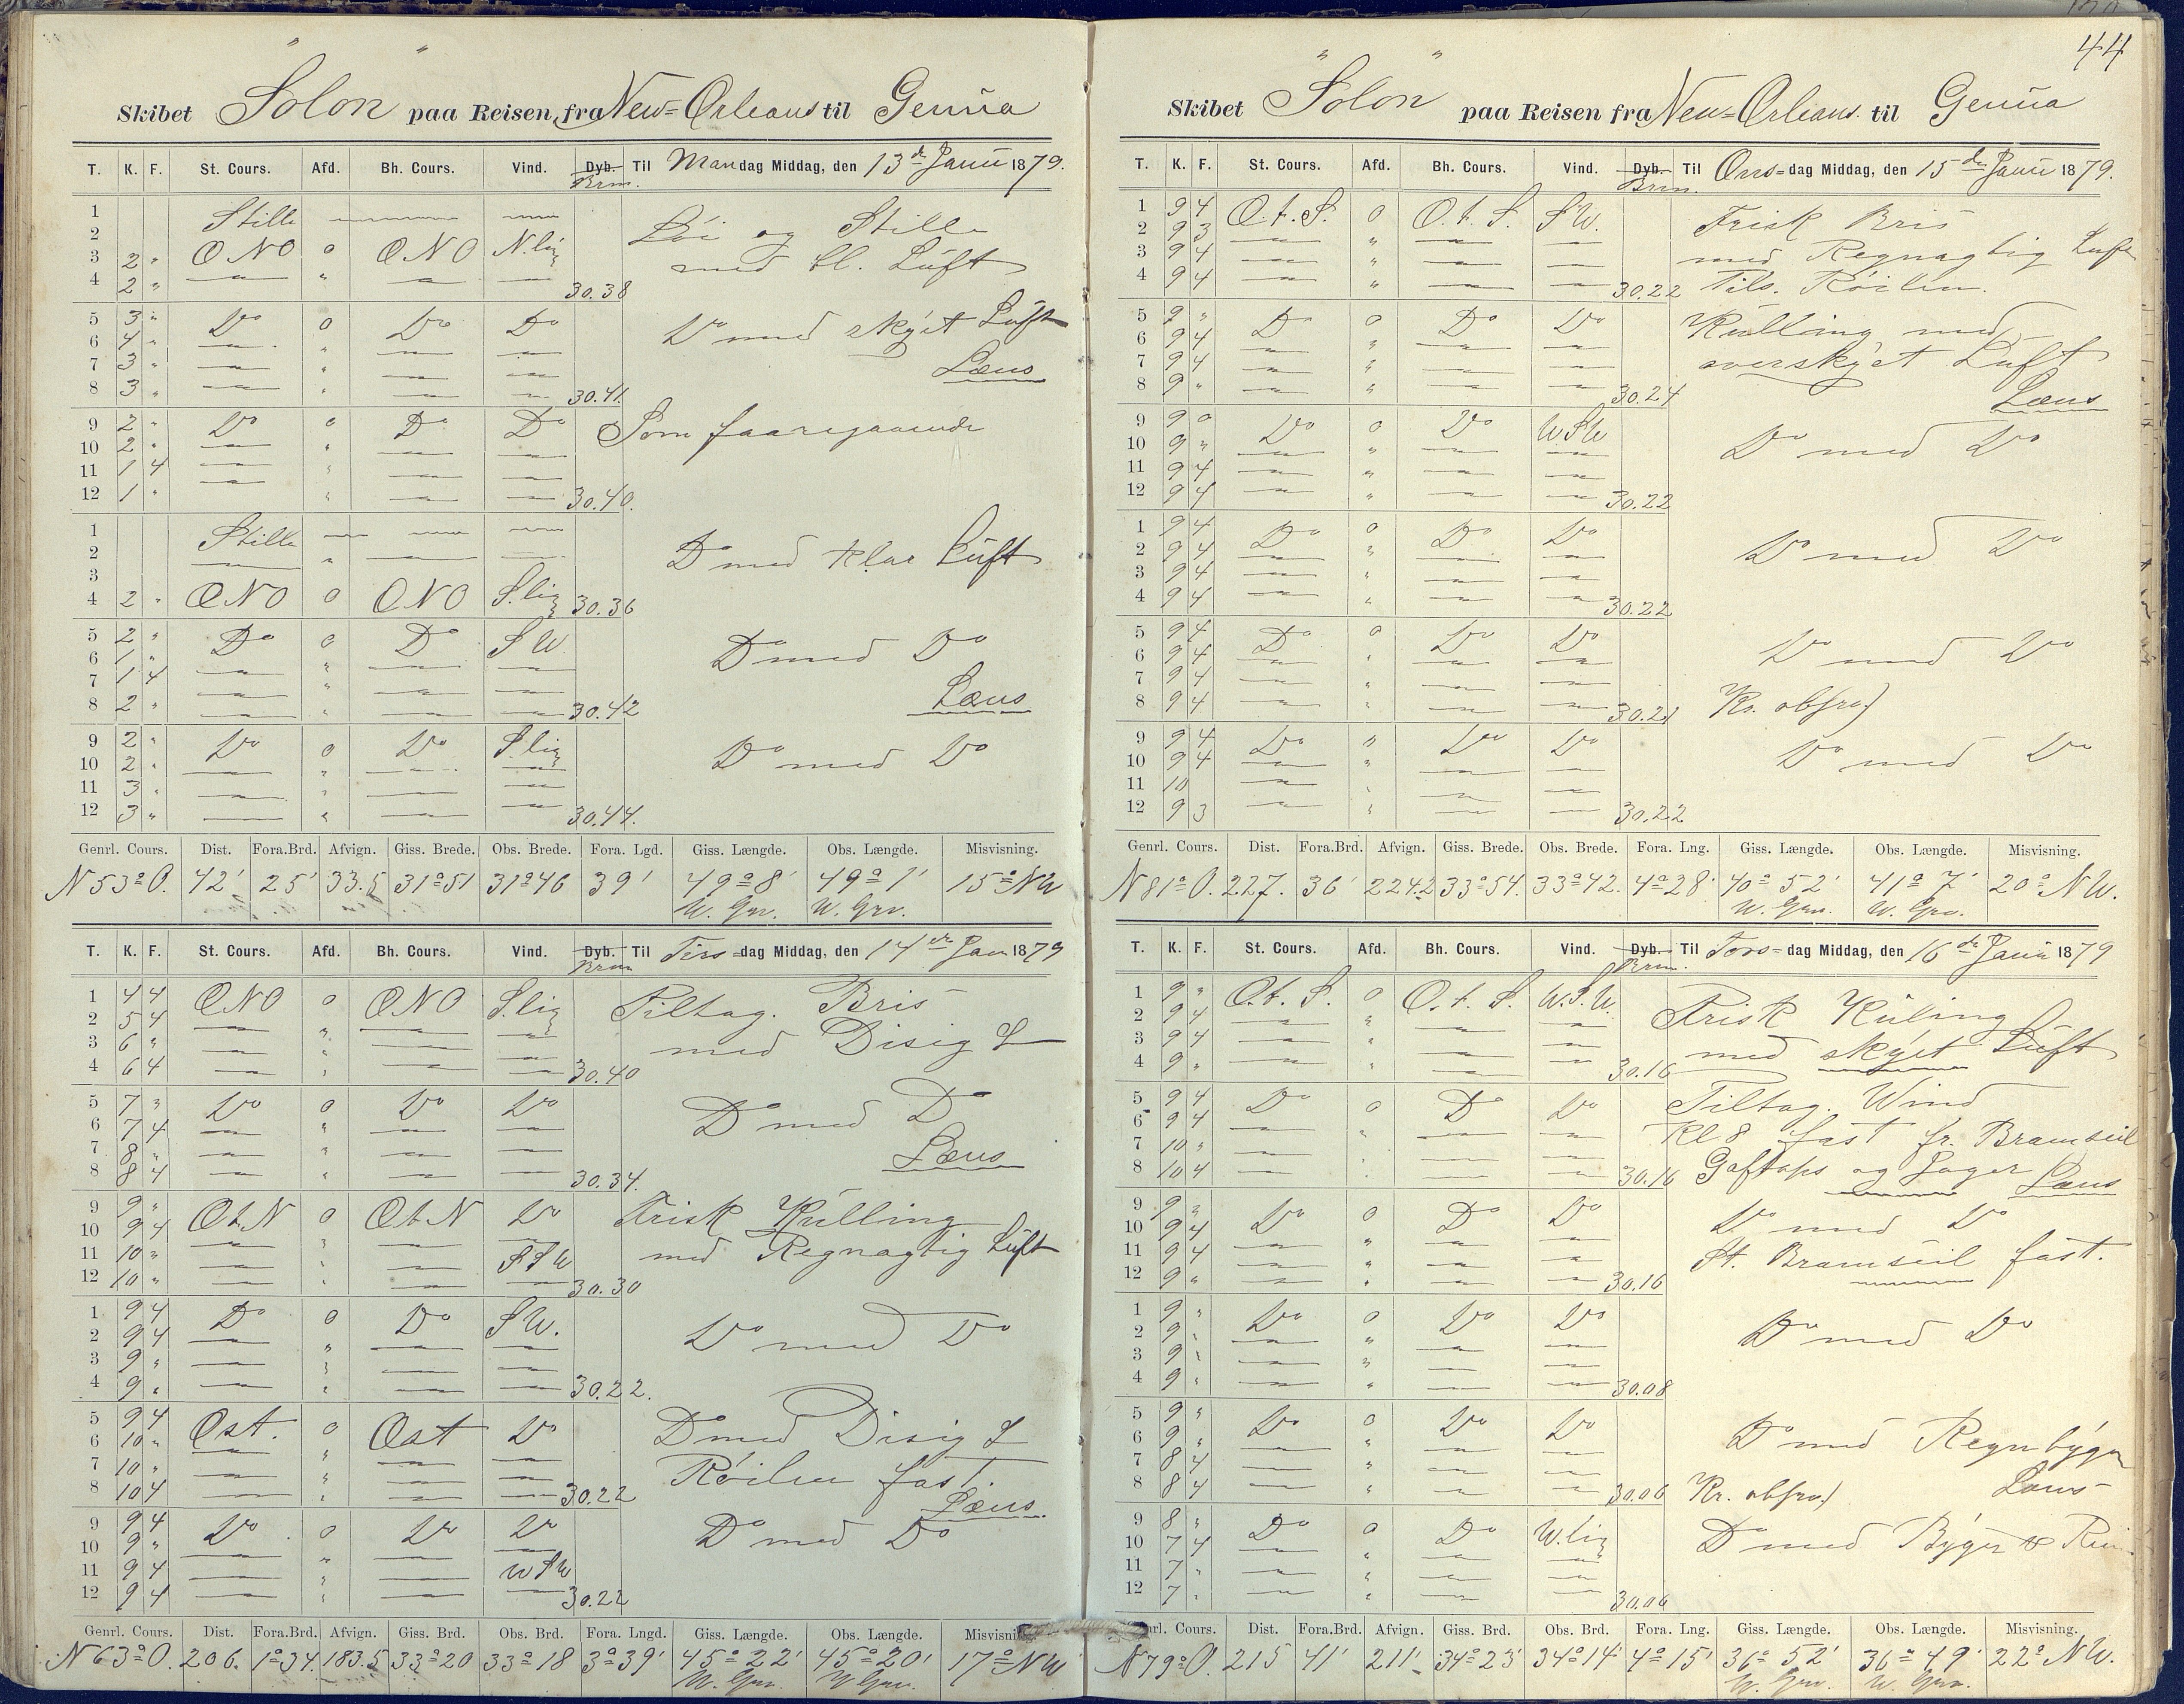 44
Skibet "Solon" paa Reisen fra New=Orleans til Genua
T. K. F. St. Cours. Afd. Bh. Cours. Vind. Dyb. Brm. Til Mandag Middag, den 13de Janu 1879.
1 Stille
2
3 2 " ONO 0 ONO N.lig
4 2 " 30.38
Löi og Stille
med kl. Luft
5 3 " Do 0 Do Do
6 4 "
7 3 "
8 3 " 30.41.
Do med skyet Luft
Læns
9 2 " Do 0 Do Do
10 2 "
11 1 4
12 1 " 30.40.
Som faaregaaende
1 Stille
2
3
4 2 " ONO 0 ONO S.lig 30.36
Do med klar Luft
5 2 " Do 0 Do SW.
6 1 "
7 1 4
8 2 " 30.42
Do med Do
Læns
9 2 " Do 0 Do S.lig
10 2 "
11 3 "
12 3 " 30.44.
Do med Do
Genrl. Cours. Dist. Fora.Brd. Afvign. Giss. Brede. Obs. Brede. Fora. Lgd. Giss. Længde. Obs. Længde. Misvisning.
N 53° O. 42' 25' 33.5 31°51 31°46 39' 49° 8' 49° 1' 15° NW
W. Grv. W. Grv.
T. K. F. St. Cours. Afd. Bh. Cours. Vind. Dyb. Brm Til Tirs=dag Middag, den 14de Jan 1879
1 4 4 ONO 0 ONO S.lig
2 5 4
3 6 "
4 6 4 30.40
Tiltag. Bris
med Disig L
5 7 " Do 0 Do Do
6 7 4
7 8 "
8 8 4 30.34.
Do med Do
Læns
9 9 " Ot.N 0 Ot.N Do
10 9 4
11 10 " SSW
12 10 " 30.30
Frisk Kulling
med Regnagtig Luft
1 9 4 Do 0 Do SW.
2 9 4
3 9 "
4 9 " 30.22.
Do med Do
5 9 4 Ost. 0 Ost Do
6 10 "
7 10 "
8 10 4 30.22
Do med Disig L
Röilen fast.
Læns.
9 9 4 Do 0 Do Do
10 9 "
11 9 4 WSW
12 9 4 30.22
Do med Do
Genrl. Cours. Dist. Fora.Brd. Afvign. Giss. Brd. Obs. Brd. Fora. Lngd. Giss. Længde. Obs. Længde. Misvisning
N 63° O. 206. 1°34. 183.5 33°20 33°18 3°39' 45° 22' 45° 20' 17° NW
W. Grv. W Grv.
Skibet "Solon" paa Reisen fra New=Orleans. til Genua
T. K. F. St. Cours. Afd. Bh. Cours. Vind. Dyb. Brm. Til Ons=dag Middag, den 15de Janu 1879.
1 9 4 O.t.S. 0 O.t.S. SW.
2 9 3
3 9 4
4 9 4 30.22
Frisk Bris
med Regnagtig Luft
Tils. Röilen.
5 9 " Do 0 Do Do
6 9 4
7 9 4
8 9 " 30.24
Kulling med
overskyet Luft
Læns
9 9 0 Do 0 Do WSW
10 9 "
11 9 4
12 9 4 30.22
Do med Do
1 9 4 Do 0 Do Do
2 9 4
3 9 4
4 9 4 30.22
Do med Do
5 9 4 Do 0 Do Do
6 9 4
7 9 4
8 9 4 30.21
Do med Do
Kr. obsra.)
9 9 4 Do " Do Do
10 9 4
11 10
12 9 3 30.22
Do med Do
Genrl. Cours. Dist. Fora.Brd. Afvign. Giss. Brede. Obs. Brede. Fora. Lng. Giss. Længde. Obs. Længde. Misvisning.
N 81° O. 227. 36' 224.2 33°54. 33°42. 4°28' 40° 52' 41° 7' 20° NW.
W. Grv. W. Grv.
T. K. F. St. Cours. Afd. Bh. Cours. Vind. Dyb. Brm. Til Tors=dag Middag, den 16de Janu 1879
1 9 " O.t.S. 0 O.t.S. W.S.W.
2 9 4
3 9 4
4 9 " 30.16
Frisk Kuling
med skyet Luft
5 9 4 Do 0 Do Do
6 9 4
7 10 "
8 10 4 30.16
Tiltag. Wind
Kl 8 fast fr. Bramseil
Gaftops og Jager Læns
9 9 " Do 0 Do Do
10 9 4
11 9 4
12 9 " 30.16
Do med Do
St. Bramseil fast.
1 9 " Do 0 Do Do
2 9 "
3 9 "
4 9 " 30.08
Do med Do
5 9 " Do 0 Do Do
6 9 "
7 8 4
8 8 4 30.06
Do med Regnbyger
Kr. obsra.) Læns
9 8 " Do 0 Do W.lig
10 7 4
11 7 "
12 7 " 30.06
Do med Byger
Genrl. Cours. Dist. Fora.Brd. Afvign. Giss. Brd. Obs. Brd. Fora. Lng. Giss. Længde. Obs. Længde. Misvisning.
N 79° O. 215 41' 211' 34°23' 34°14' 4°15' 36° 52' 36° 49' 22° NW.
W. Grv. W. Grv.